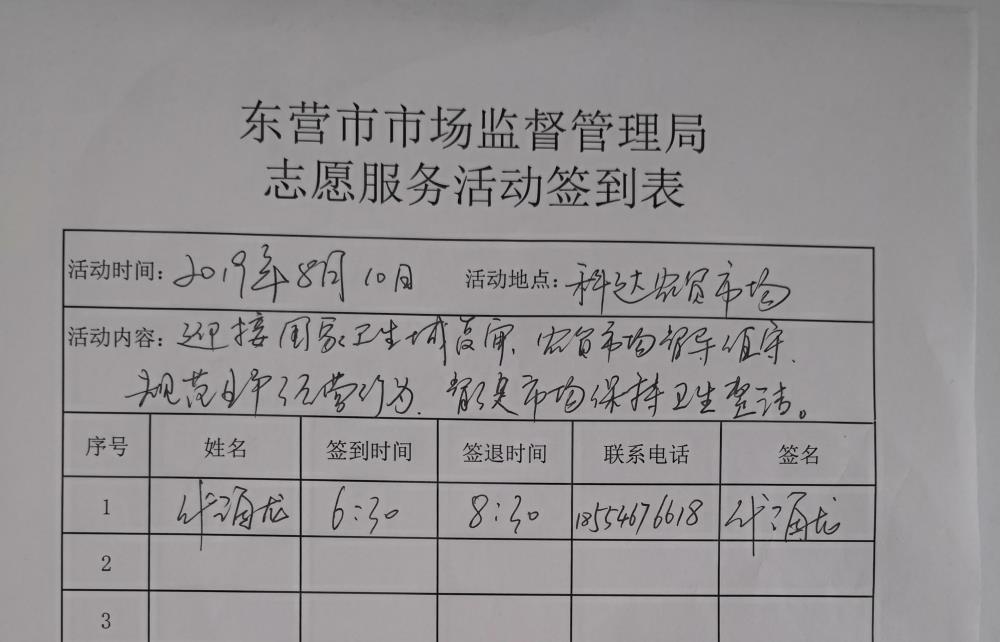 东营市市场监督管理局
志愿服务活动签到表
活动时间：2019年8月10日 活动地点：科达农贸市场
活动内容：迎接国家卫生城复审，农贸市场督导值守，
规范自产经营行为，督促市场保持卫生整洁。
序号 姓名 签到时间 签退时间 联系电话 签名
1 6:30 8:30 18554676618
2
3